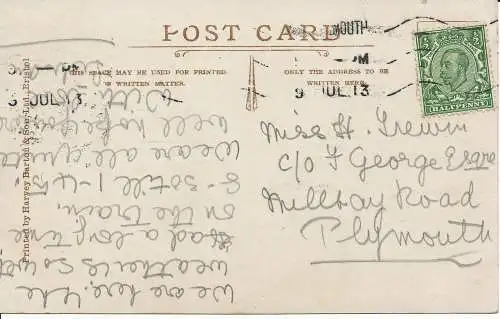 POST CARD
THIS SPACE MAY BE USED FOR PRINTED
OR WRITTEN MATTER.
ONLY THE ADDRESS TO BE
WRITTEN HERE.
MOUTH
PM
9 JUL 13
HALFPENNY
Miss H. Trewin
c/o F George Esqre
Millbay Road
Plymouth
We are here, the
weather is so wet
Had a long time
on the train,
8-30 till 1-45
We are all
well hope you
with
Printed by Harvey Barton & Son Ltd., Bristol